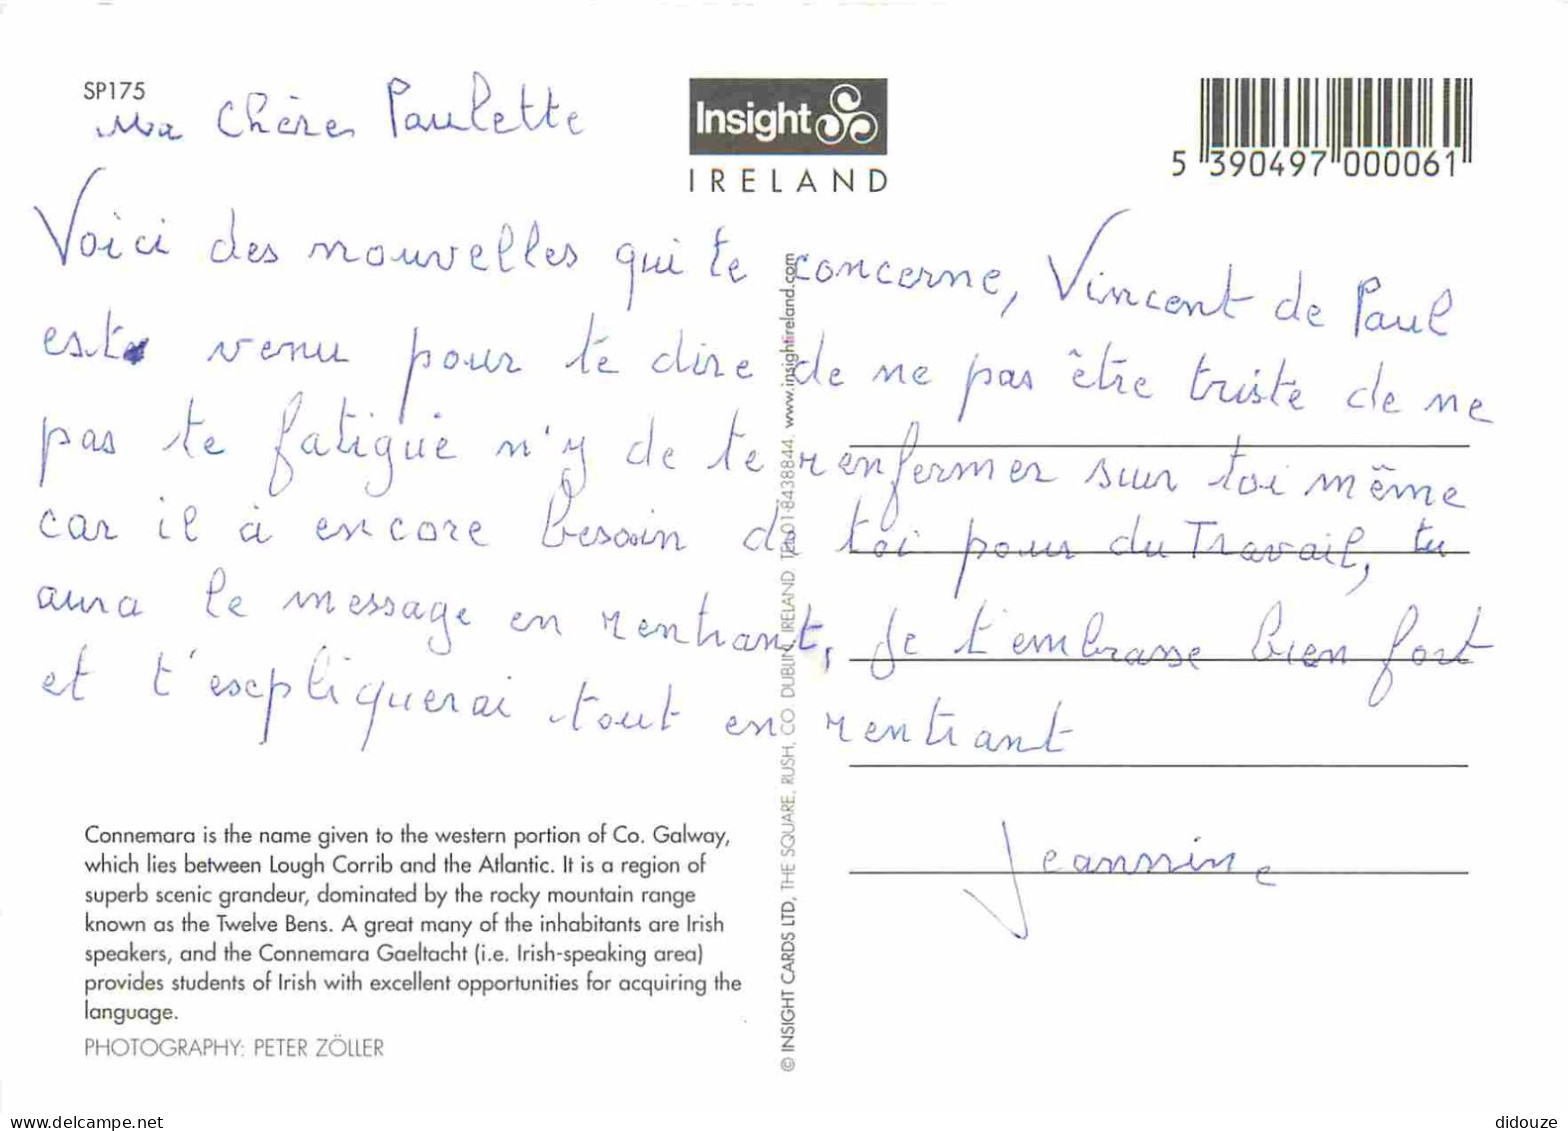 SP175
Ma Chère Paulette
Insight
IRELAND
5 390497 000061
Voici des nouvelles qui te concerne, Vincent de Paul
est venu pour te dire de ne pas être triste de ne
pas te fatigué n'y de te renfermer sur toi même
car il à encore besoin de toi pour du Travail, tu
aura le message en rentrant, Je t'embrasse bien fort
et t'expliquerai tout en rentrant
Jeannine
Connemara is the name given to the western portion of Co. Galway,
which lies between Lough Corrib and the Atlantic. It is a region of
superb scenic grandeur, dominated by the rocky mountain range
known as the Twelve Bens. A great many of the inhabitants are Irish
speakers, and the Connemara Gaeltacht (i.e. Irish-speaking area)
provides students of Irish with excellent opportunities for acquiring the
language.
PHOTOGRAPHY: PETER ZÖLLER
© INSIGHT CARDS LTD, THE SQUARE, RUSH, CO DUBLIN, IRELAND TEL 01-8438844. www.insightireland.com
http://www.delcampe.net
didouze